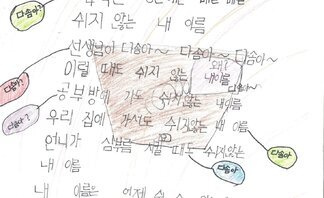 다솜아~
쉬지 않는 내 이름
선생님이 다솜아~ 다솜아~ 다솜아~
이럴 때도 쉬지 않는 내이름
왜?
다솜아?
공부방에 가도 쉬지않는 내이름
다솜아?
우리 집에 가서도 쉬지않는 내 이름
언니가 심부름 시킬 때도 쉬지않는
다솜아
내 이름
다솜아
다솜아
내 이름은 언제